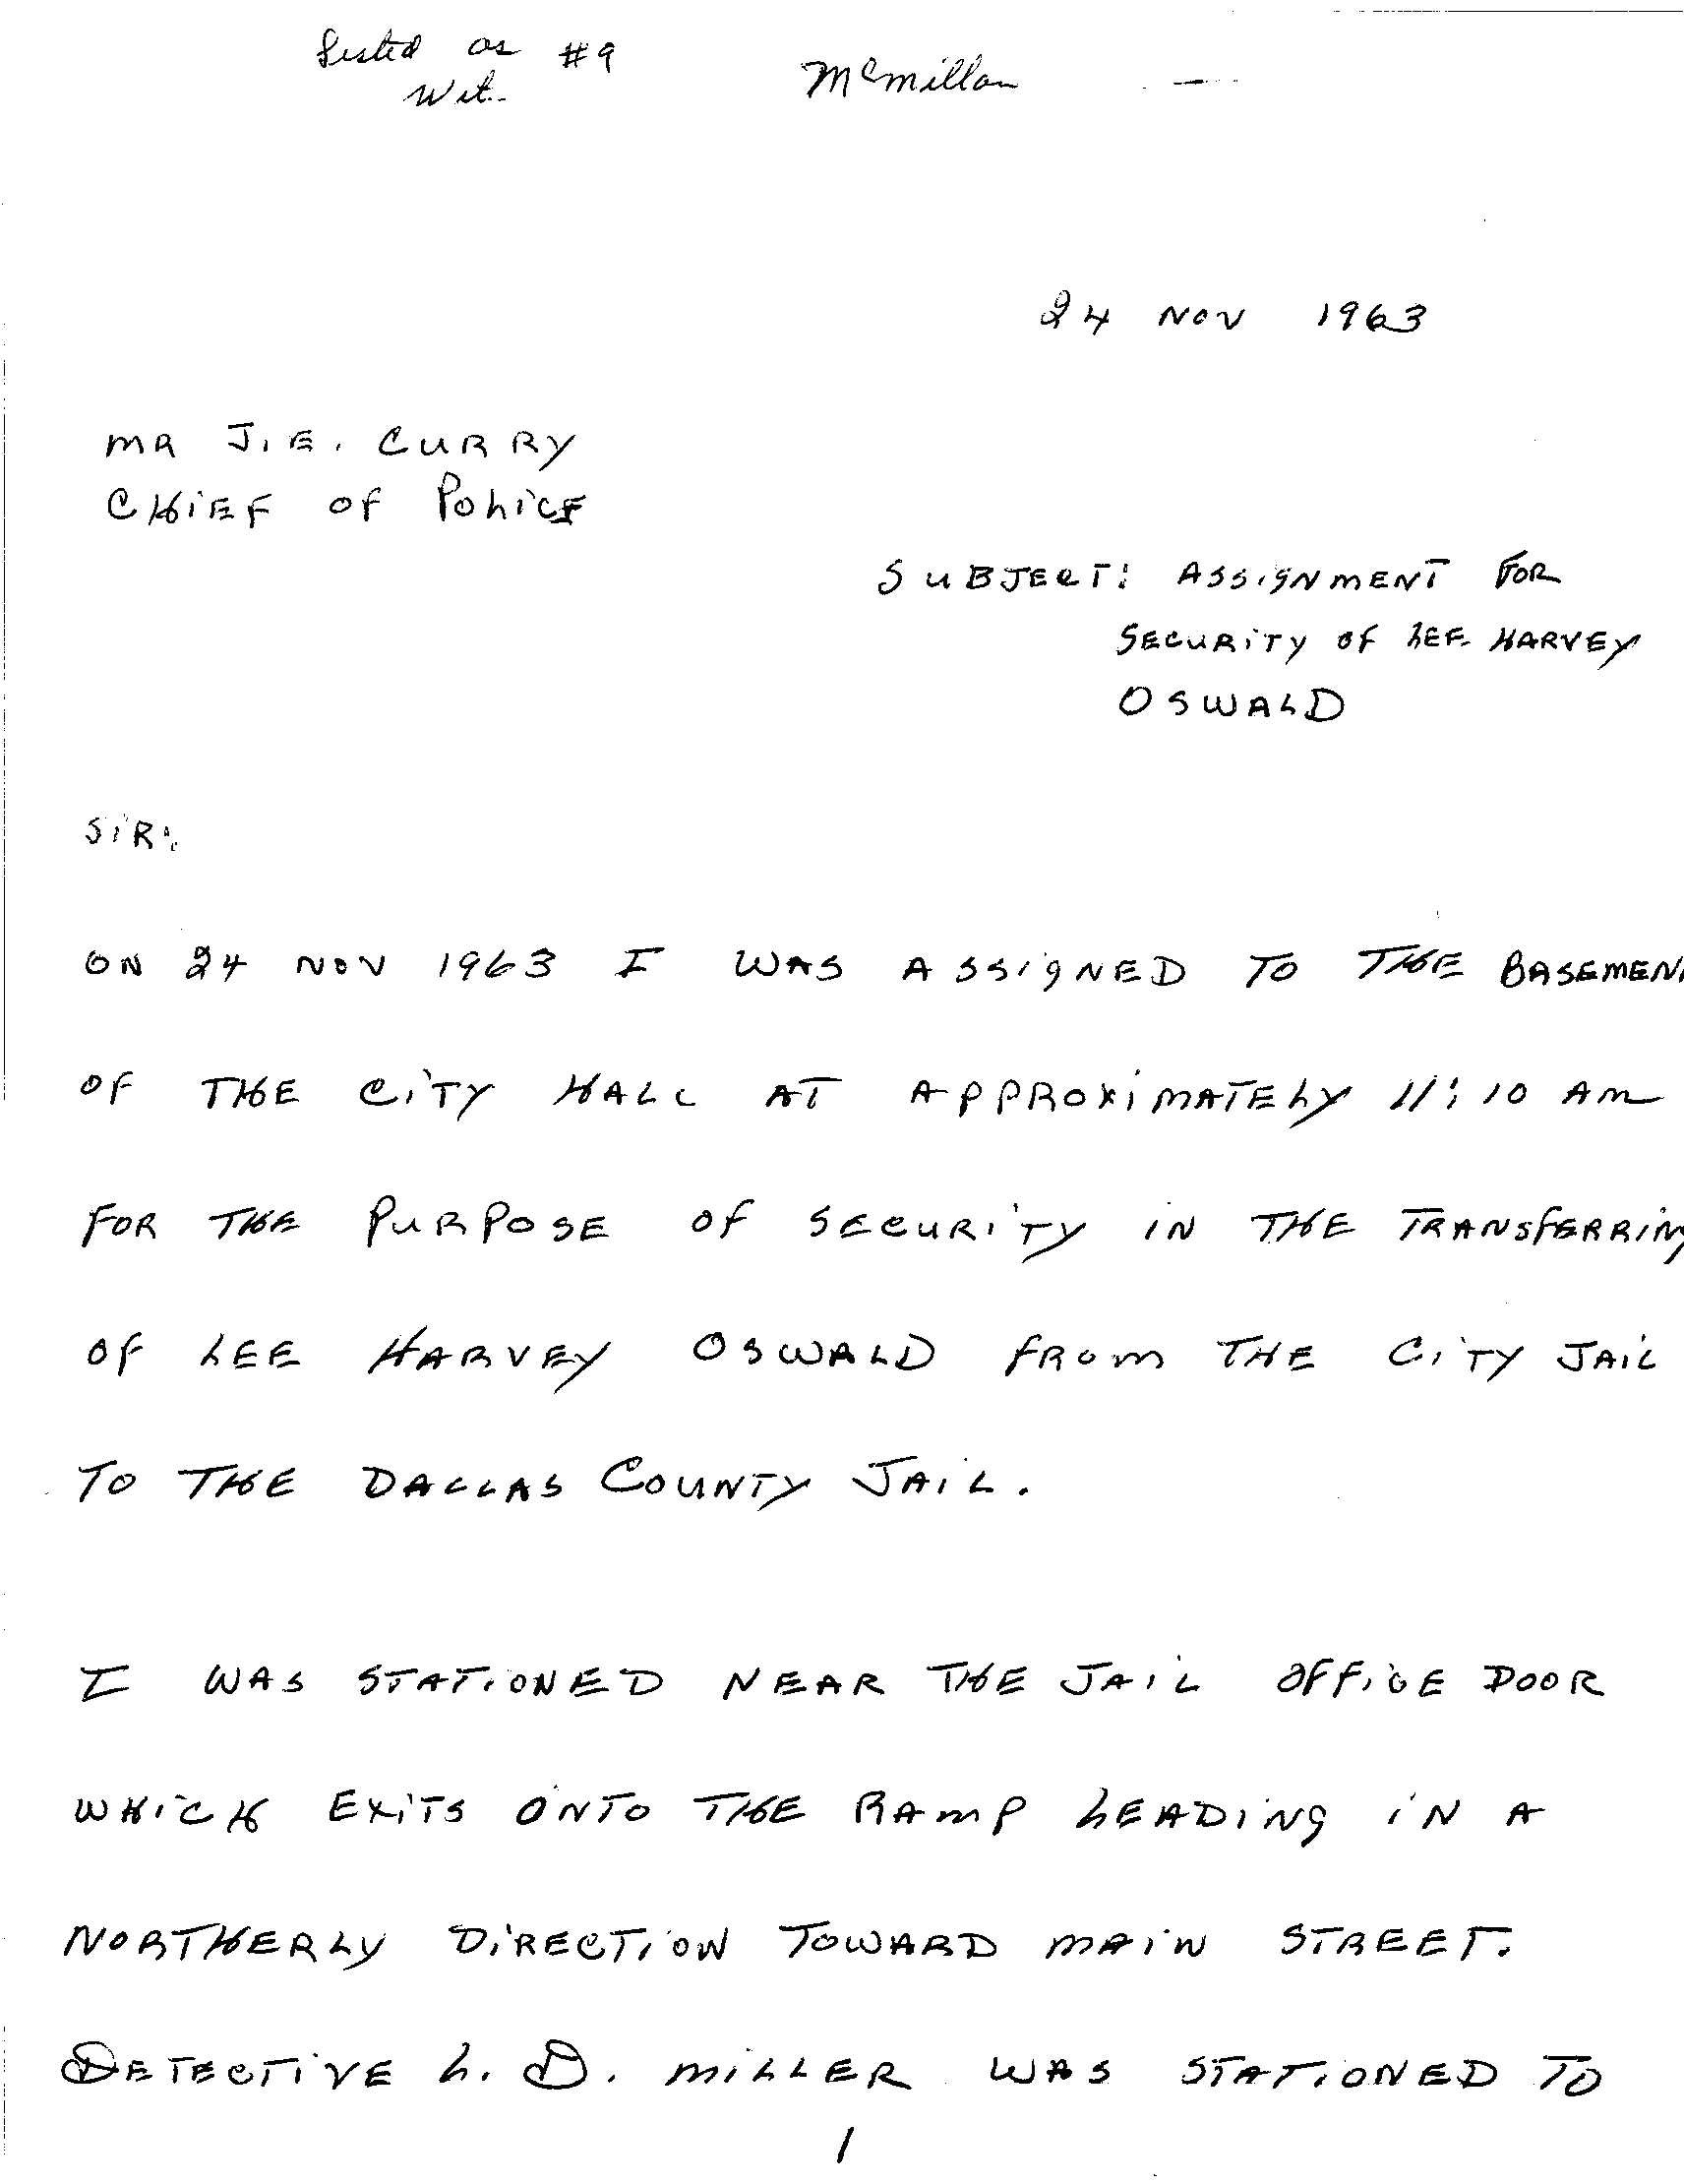 Listed as #9
Wit.
McMillan
24 NOV 1963
MR J.E. CURRY
CHIEF OF POLICE
SUBJECT: ASSIGNMENT FOR
SECURITY OF LEE HARVEY
OSWALD
SIR:
ON 24 NOV 1963 I WAS ASSIGNED TO THE BASEMEN
OF THE CITY HALL AT APPROXIMATELY 11:10 AM
FOR THE PURPOSE OF SECURITY IN THE TRANSFERRING
OF LEE HARVEY OSWALD FROM THE CITY JAIL
TO THE DALLAS COUNTY JAIL.
I WAS STATIONED NEAR THE JAIL OFFICE DOOR
WHICH EXITS ONTO THE RAMP LEADING IN A
NORTHERLY DIRECTION TOWARD MAIN STREET.
DETECTIVE L. D. MILLER WAS STATIONED TO
1